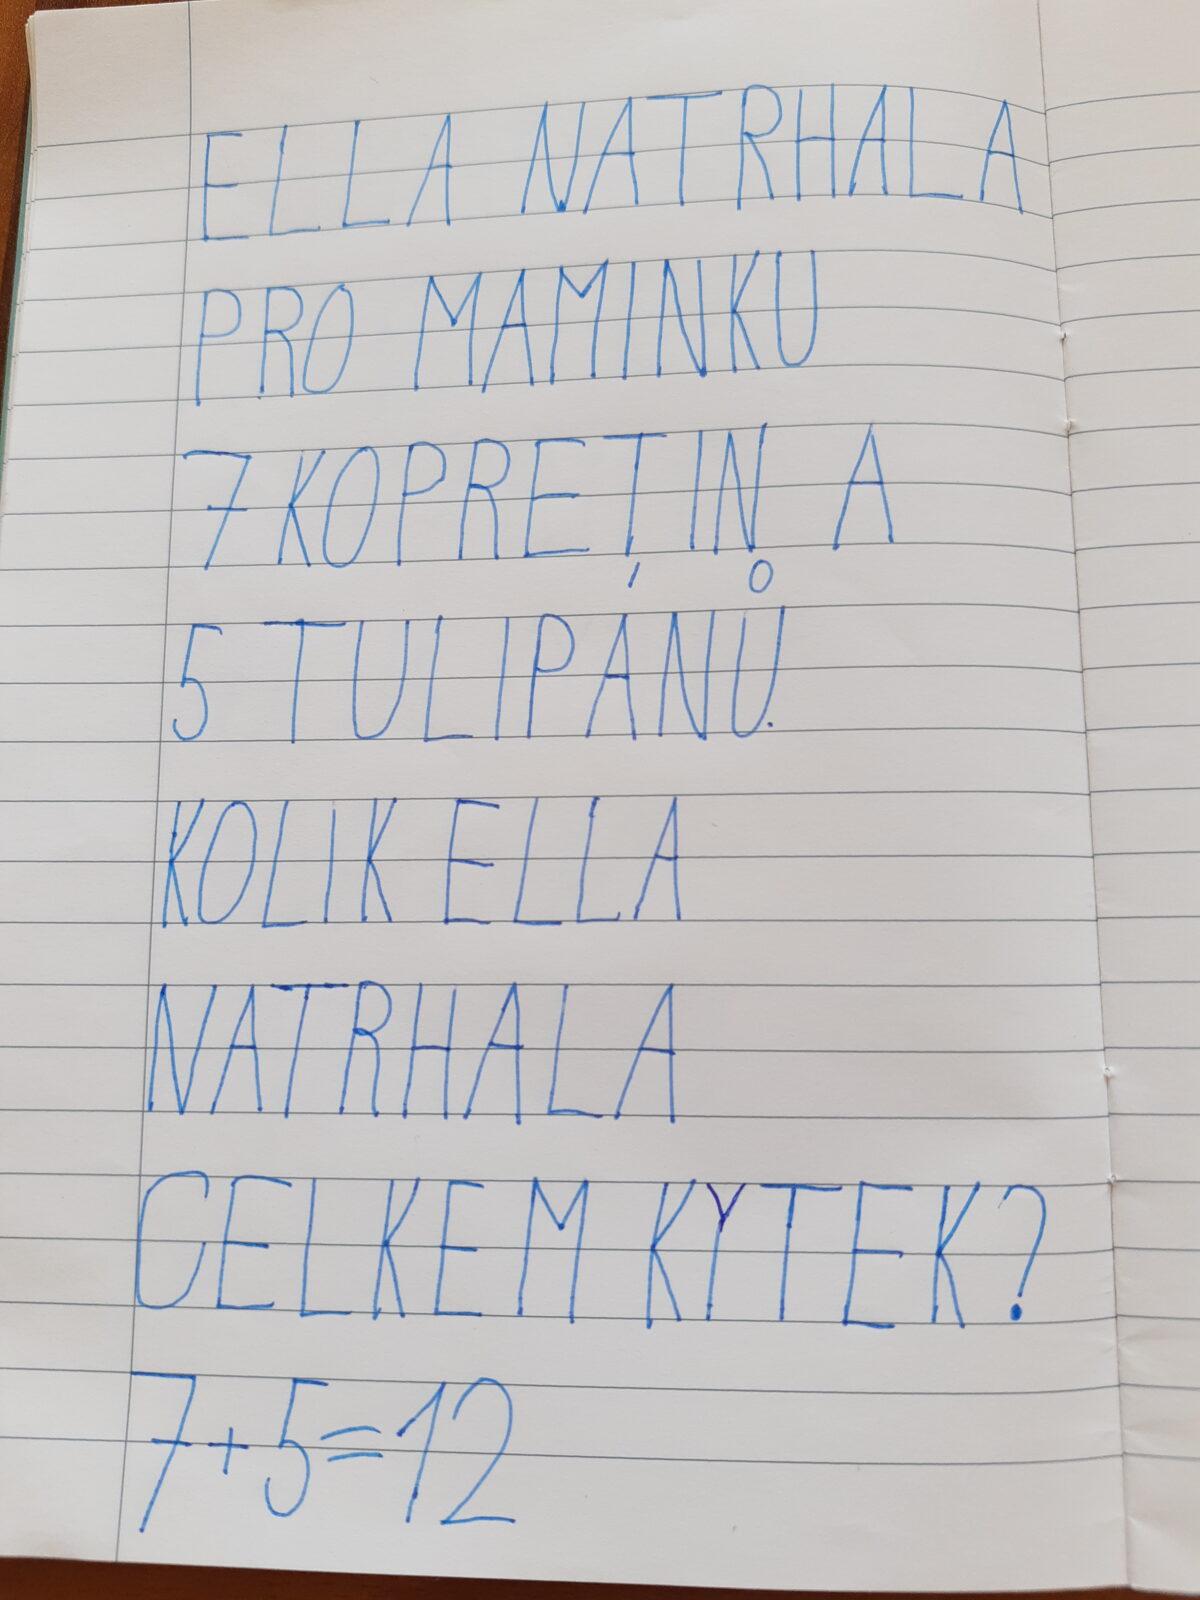 ELLA NATRHALA
PRO MAMINKU
7 KOPRETIN A
5 TULIPÁNŮ.
KOLIK ELLA
NATRHALA
CELKEM KYTEK?
7+5=12